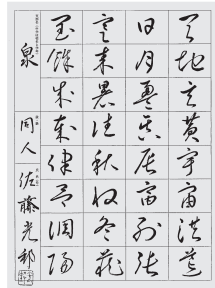 天地玄黄宇宙洪荒
日月盈昃辰宿列張
寒来暑往秋收冬蔵
閏餘成歳律呂調陽
泉 同人 佐藤光郁